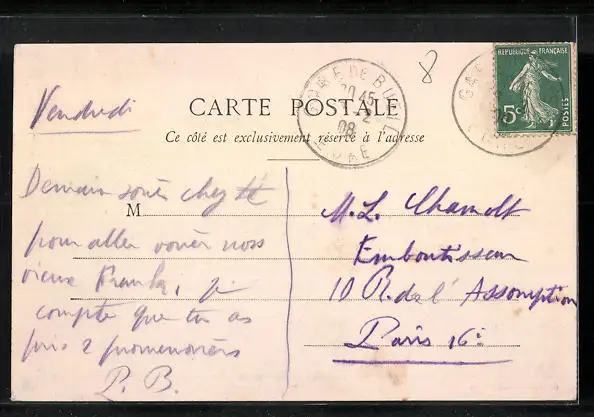 8
REPUBLIQUE FRANÇAISE
5c
POSTES
GARE DE BU
20 45
2
08
Vendredi
CARTE POSTALE
Ce côté est exclusivement réservé à l'adresse
M
Demain soir chez
pour aller voir nos
vieux
compte que tu as
pris 2 promenoirs
P. B.
M. L. Chamolt
Emboutisseur
10 R. de l'Assomption
Paris 16e